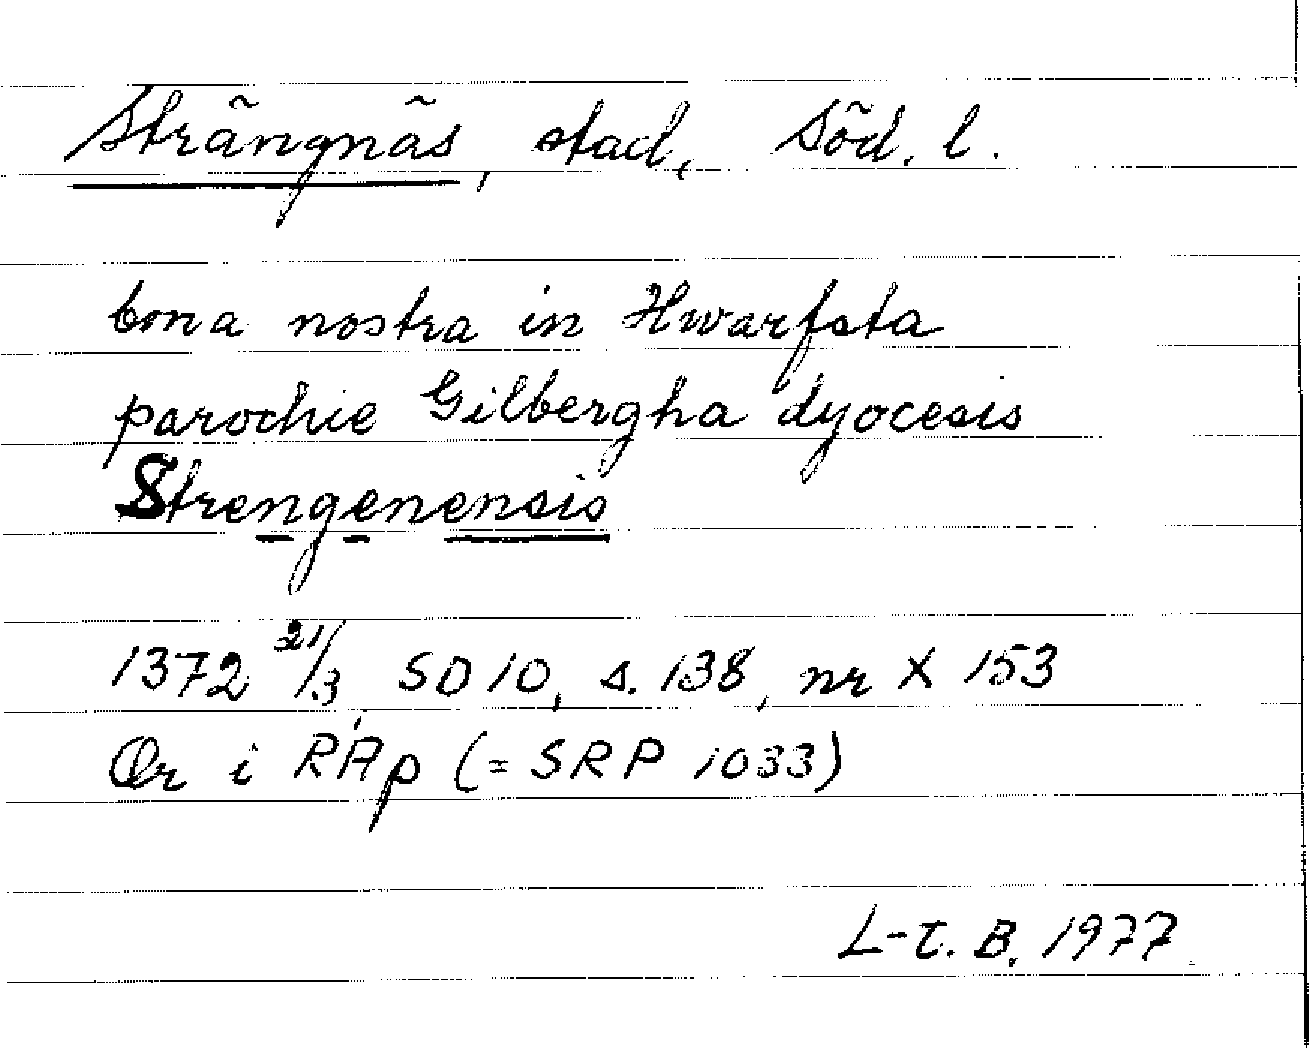 Strängnäs, stad, Söd. l.
bona nostra in Hwarfsta
parochie Gilbergha dyocesis
Strengenensis
1372 21/3, SD 10, s. 138, nr X 153
Or i RAp (= SRP 1033)
L-t. B. 1977